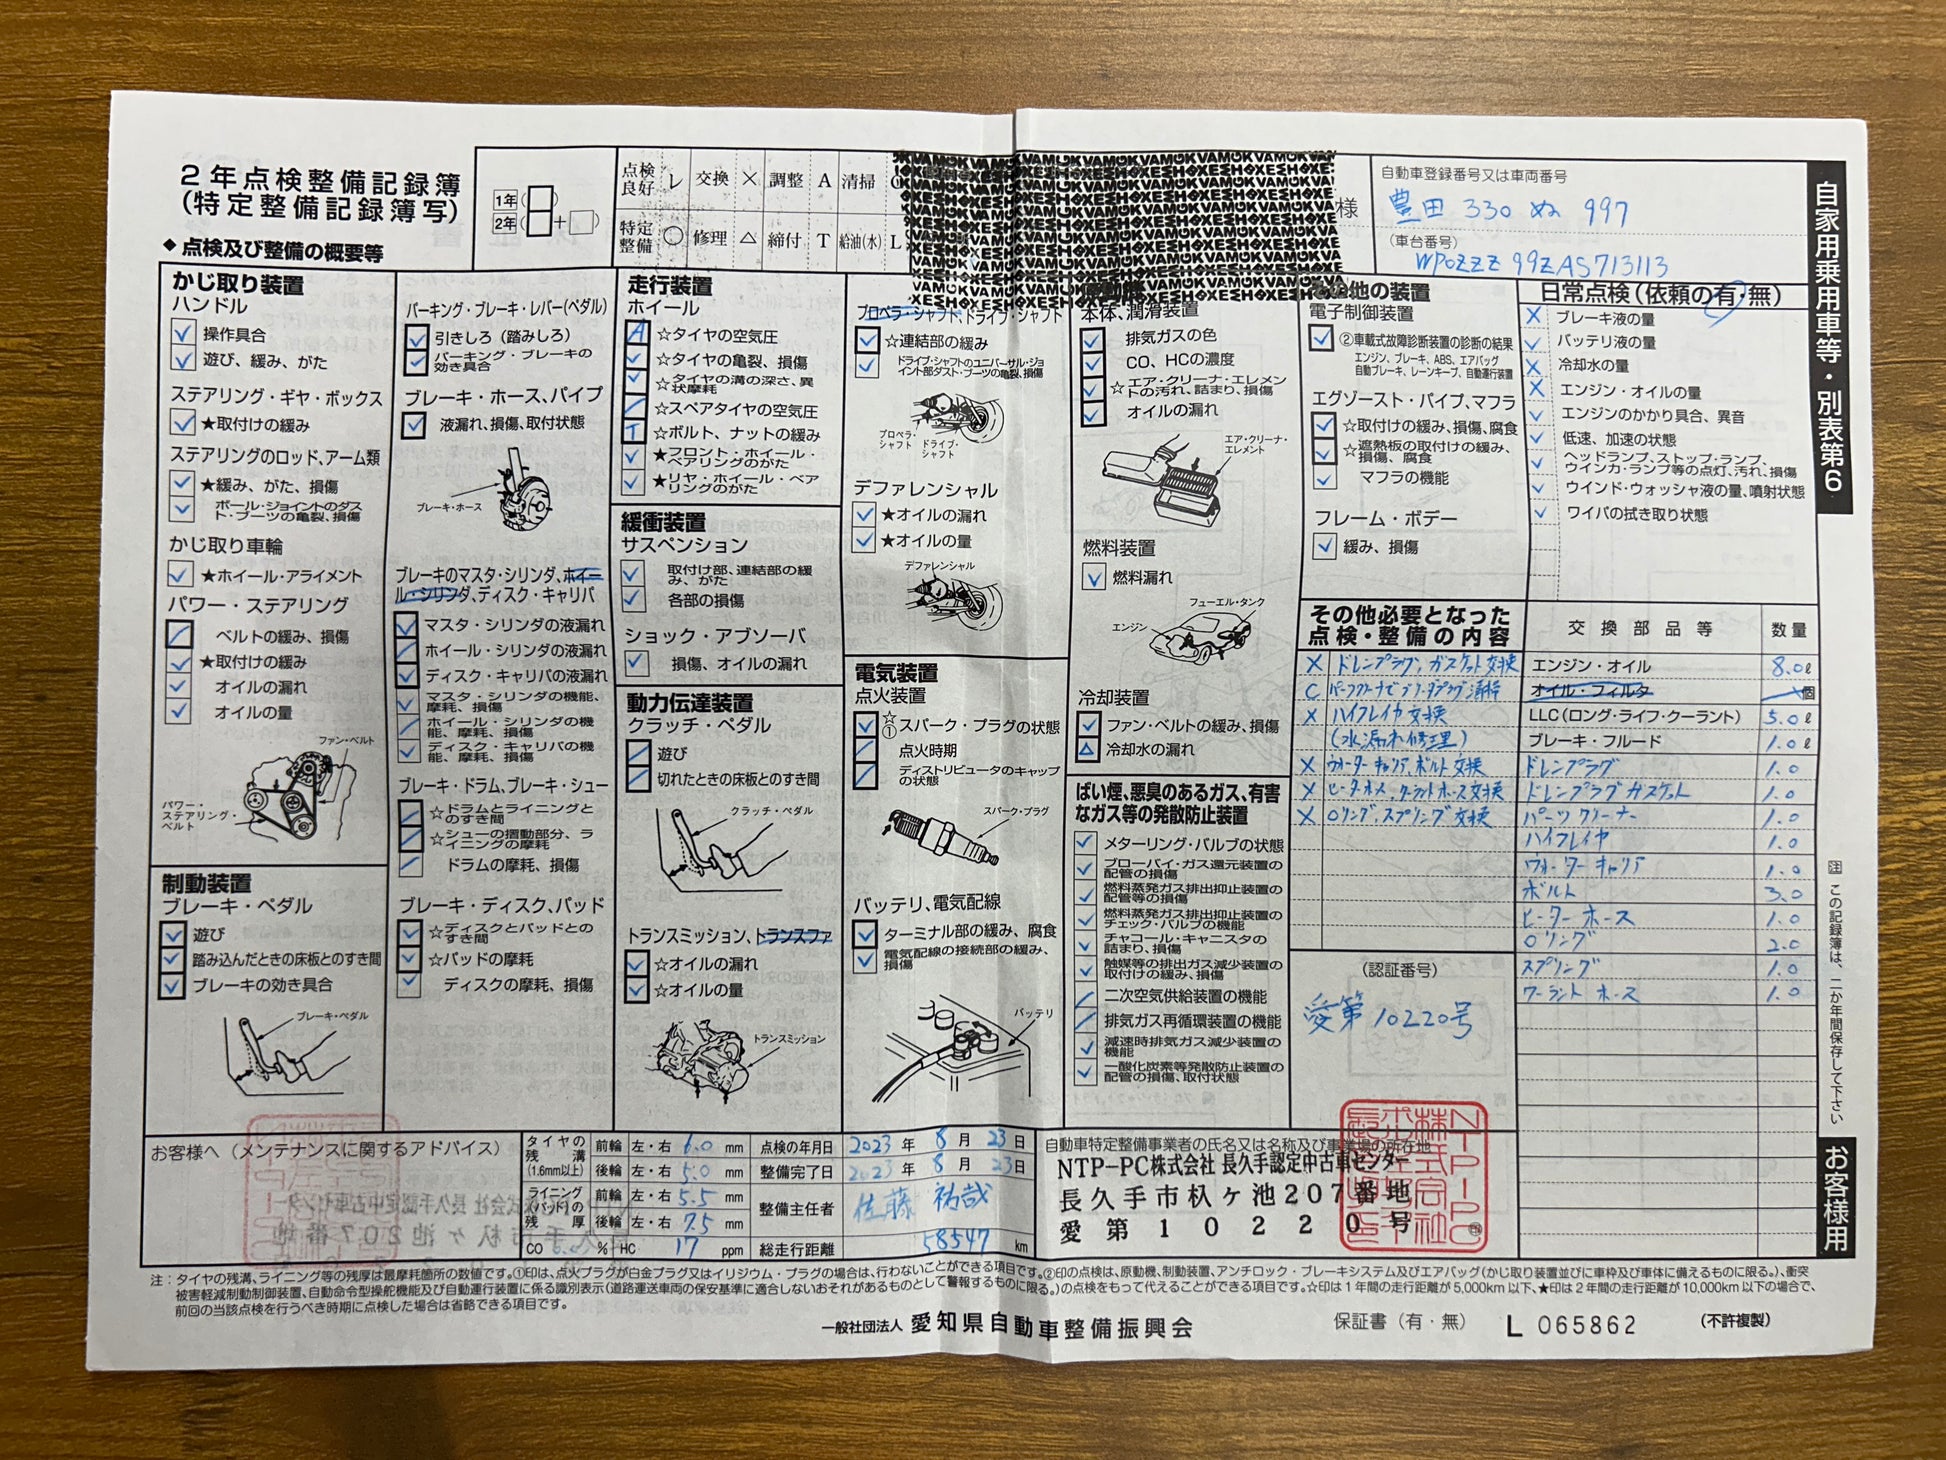 2年点検整備記録簿
(特定整備記録簿写)
◆点検及び整備の概要等
1年
2年 +
点検良好 レ 交換 × 調整 A 清掃
特定整備 ○ 修理 △ 締付 T 給油(水) L
様
自動車登録番号又は車両番号
豊田 330 ぬ 997
(車台番号)
WP0ZZZ99ZAS713113
自家用乗用車等・別表第6
かじ取り装置
ハンドル
操作具合
遊び、緩み、がた
ステアリング・ギヤ・ボックス
★取付けの緩み
ステアリングのロッド、アーム類
★緩み、がた、損傷
ボール・ジョイントのダスト・ブーツの亀裂、損傷
かじ取り車輪
★ホイール・アライメント
パワー・ステアリング
ベルトの緩み、損傷
★取付けの緩み
オイルの漏れ
オイルの量
ファン・ベルト
パワー・ステアリング・ベルト
制動装置
ブレーキ・ペダル
遊び
踏み込んだときの床板とのすき間
ブレーキの効き具合
ブレーキ・ペダル
パーキング・ブレーキ・レバー(ペダル)
引きしろ(踏みしろ)
パーキング・ブレーキの効き具合
ブレーキ・ホース、パイプ
液漏れ、損傷、取付状態
ブレーキ・ホース
ブレーキのマスタ・シリンダ、ホイール・シリンダ、ディスク・キャリパ
マスタ・シリンダの液漏れ
ホイール・シリンダの液漏れ
ディスク・キャリパの液漏れ
マスタ・シリンダの機能、摩耗、損傷
ホイール・シリンダの機能、摩耗、損傷
ディスク・キャリパの機能、摩耗、損傷
ブレーキ・ドラム、ブレーキ・シュー
☆ドラムとライニングとのすき間
☆シューの摺動部分、ライニングの摩耗
ドラムの摩耗、損傷
ブレーキ・ディスク、パッド
☆ディスクとパッドとのすき間
☆パッドの摩耗
ディスクの摩耗、損傷
走行装置
ホイール
A ☆タイヤの空気圧
☆タイヤの亀裂、損傷
☆タイヤの溝の深さ、異状摩耗
☆スペアタイヤの空気圧
T ☆ボルト、ナットの緩み
★フロント・ホイール・ベアリングのがた
★リヤ・ホイール・ベアリングのがた
緩衝装置
サスペンション
取付け部、連結部の緩み、がた
各部の損傷
ショック・アブソーバ
損傷、オイルの漏れ
動力伝達装置
クラッチ・ペダル
遊び
切れたときの床板とのすき間
クラッチ・ペダル
トランスミッション、トランスファ
☆オイルの漏れ
☆オイルの量
トランスミッション
プロペラ・シャフト、ドライブ・シャフト
☆連結部の緩み
ドライブ・シャフトのユニバーサル・ジョイント部ダスト・ブーツの亀裂、損傷
プロペラ・シャフト
ドライブ・シャフト
デファレンシャル
★オイルの漏れ
★オイルの量
デファレンシャル
電気装置
点火装置
☆① スパーク・プラグの状態
点火時期
ディストリビュータのキャップの状態
スパーク・プラグ
バッテリ、電気配線
ターミナル部の緩み、腐食
電気配線の接続部の緩み、損傷
バッテリ
本体、潤滑装置
排気ガスの色
CO、HCの濃度
☆エア・クリーナ・エレメントの汚れ、詰まり、損傷
オイルの漏れ
エア・クリーナ・エレメント
燃料装置
燃料漏れ
フューエル・タンク
エンジン
冷却装置
ファン・ベルトの緩み、損傷
△ 冷却水の漏れ
ばい煙、悪臭のあるガス、有害なガス等の発散防止装置
メターリング・バルブの状態
ブローバイ・ガス還元装置の配管の損傷
燃料蒸発ガス排出抑止装置の配管等の損傷
燃料蒸発ガス排出抑止装置のチェック・バルブの機能
チャコール・キャニスタの詰まり、損傷
触媒等の排出ガス減少装置の取付けの緩み、損傷
二次空気供給装置の機能
排気ガス再循環装置の機能
減速時排気ガス減少装置の機能
一酸化炭素等発散防止装置の配管の損傷、取付状態
その他の装置
電子制御装置
②車載式故障診断装置の診断の結果
エンジン、ブレーキ、ABS、エアバッグ
自動ブレーキ、レーンキープ、自動運行装置
エグゾースト・パイプ、マフラ
☆取付けの緩み、損傷、腐食
☆遮熱板の取付けの緩み、損傷、腐食
マフラの機能
フレーム・ボデー
緩み、損傷
日常点検(依頼の有・無)
× ブレーキ液の量
バッテリ液の量
× 冷却水の量
× エンジン・オイルの量
エンジンのかかり具合、異音
低速、加速の状態
ヘッドランプ、ストップ・ランプ、ウインカ・ランプ等の点灯、汚れ、損傷
ウインド・ウォッシャ液の量、噴射状態
ワイパの拭き取り状態
その他必要となった点検・整備の内容
× ドレンプラグ、ガスケット交換
C パーツクリーナで
× ハイフレイヤ交換
(水漏れ修理)
× ウォーターキャリア、ボルト交換
× ヒータホース、クーラントホース交換
× Oリング、スプリング交換
交換部品等 数量
エンジン・オイル 8.0ℓ
オイル・フィルタ 個
LLC(ロング・ライフ・クーラント) 5.0ℓ
ブレーキ・フルード 1.0ℓ
ドレンプラグ 1.0
ドレンプラグガスケット 1.0
パーツクリーナー 1.0
ハイフレイヤ 1.0
ウォーターキャリア 1.0
ボルト 3.0
ヒーターホース 1.0
Oリング 2.0
スプリング 1.0
クーラントホース 1.0
(認証番号)
愛第10220号
注 この記録簿は、二か年間保存して下さい
お客様用
お客様へ(メンテナンスに関するアドバイス)
タイヤの残溝(1.6mm以上) 前輪 左・右 6.0 mm
後輪 左・右 5.0 mm
ライニング(パッド)の残厚 前輪 左・右 5.5 mm
後輪 左・右 7.5 mm
CO 0.0 % HC 17 ppm
点検の年月日 2023年 8月 23日
整備完了日 2023年 8月 23日
整備主任者 佐藤 祐哉
総走行距離 58547 km
自動車特定整備事業者の氏名又は名称及び事業場の所在地
NTP-PC株式会社 長久手認定中古車センター
長久手市杁ヶ池207番地
愛第10220号
注:タイヤの残溝、ライニング等の残厚は最摩耗箇所の数値です。①印は、点火プラグが白金プラグ又はイリジウム・プラグの場合は、行わないことができる項目です。②印の点検は、原動機、制動装置、アンチロック・ブレーキシステム及びエアバッグ(かじ取り装置並びに車枠及び車体に備えるものに限る。)、衝突
被害軽減制動制御装置、自動命令型操舵機能及び自動運行装置に係る識別表示(道路運送車両の保安基準に適合しないおそれがあるものとして警報するものに限る。)の点検をもって代えることができる項目です。☆印は1年間の走行距離が5,000km以下、★印は2年間の走行距離が10,000km以下の場合で、
前回の当該点検を行うべき時期に点検した場合は省略できる項目です。
一般社団法人 愛知県自動車整備振興会
保証書(有・無) L 065862 (不許複製)